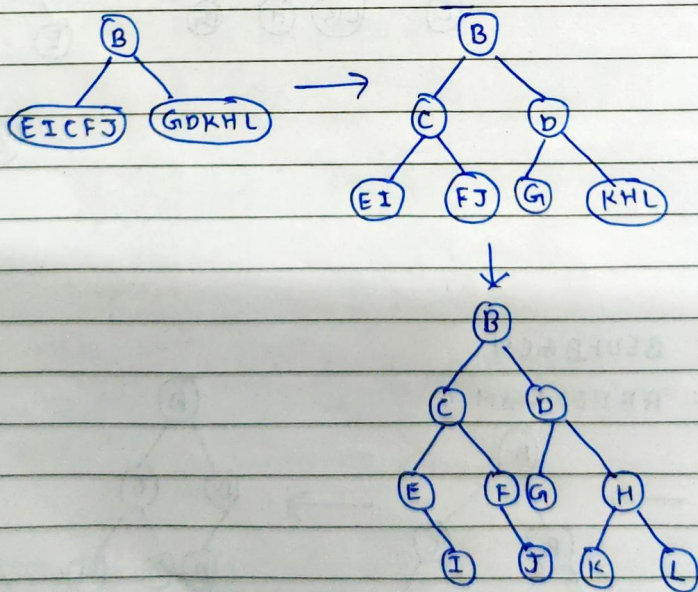 B B
EICFJ GDKHL C D
EI FJ G KHL
B
C D
E F G H
I J K L